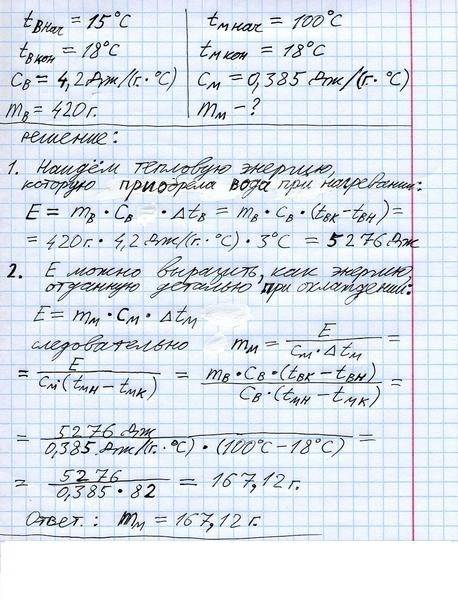 tВнач = 15°C
tмнач = 100°C
tВкон = 18°C
tмкон = 18°C
CВ = 4,2 Дж/(г.·°C)
Cм = 0,385 Дж/(г.·°C)
mВ = 420г.
mм – ?
решение:
1. Найдём тепловую энергию,
которую приобрела вода при нагревании:
E = mВ · CВ · ΔtВ = mВ · CВ · (tВК – tВН) =
= 420г. · 4,2 Дж/(г.·°C) · 3°C = 5276 Дж
2. E можно выразить, как энергию,
отданную деталью при охлаждении:
E = mм · Cм · Δtм
следовательно mм = E / Cм · Δtм =
= E / Cм · (tмн – tмк) = mВ · CВ · (tВК – tВН) / CВ · (tмн – tмк) =
= 5276 Дж / 0,385 Дж/(г.·°C) · (100°C – 18°C) =
= 5276 / 0,385 · 82 = 167,12 г.
Ответ.: mм = 167,12 г.